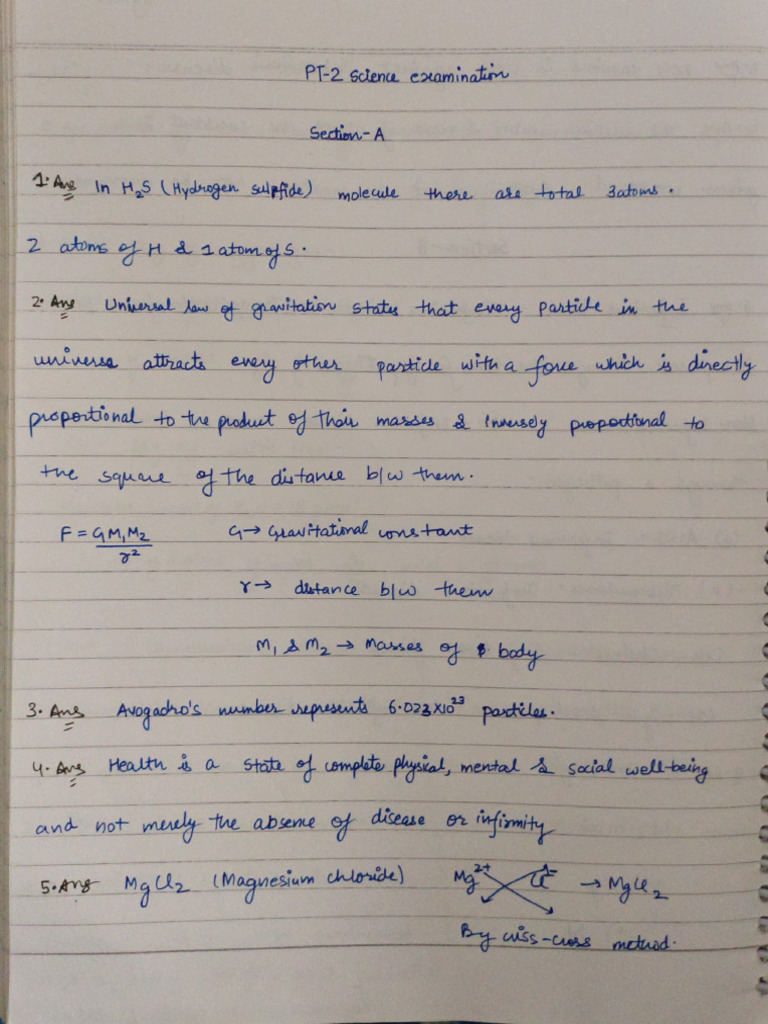 PT-2 Science examination
Section-A
1. Ans In H₂S (Hydrogen sulpfide) molecule there are total 3 atoms.
2 atoms of H & 1 atom of S.
2. Ans Universal law of gravitation states that every particle in the
universe attracts every other particle with a force which is directly
proportional to the product of their masses & inversely proportional to
the square of the distance b/w them.
F = GM₁M₂/r² G → Gravitational constant
r → distance b/w them
M₁ & M₂ → Masses of body
3. Ans Avogadro's number represents 6.023×10²³ particles.
4. Ans Health is a state of complete physical, mental & social well-being
and not merely the absense of disease or infirmity
5. Ans MgCl₂ (Magnesium chloride) Mg²⁺ Cl¹⁻ → MgCl₂
By criss-cross method.